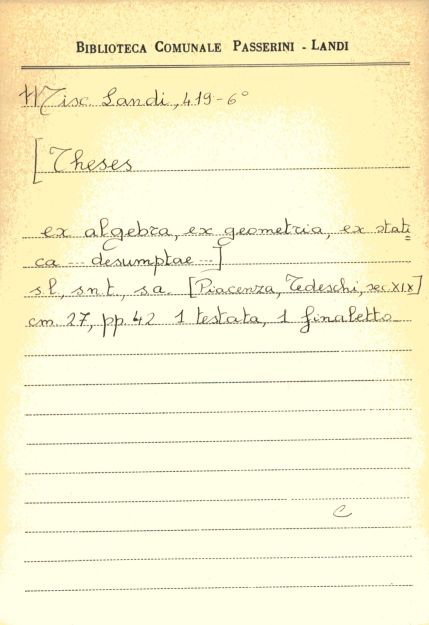 BIBLIOTECA COMUNALE PASSERINI - LANDI
Misc. Landi, 419-6°
[Theses
ex algebra, ex geometria, ex stati=
ca --- desumptae ---]
s.l., s.n.t., s.a. [Piacenza, Tedeschi, sec. XIX]
cm. 27, pp. 42 1 testata, 1 finaletto
C